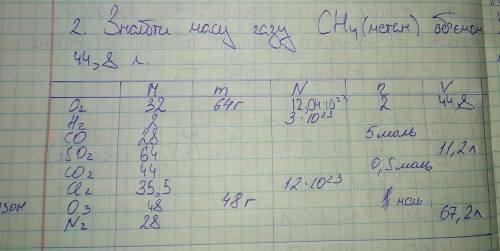 2. Знайти масу газу CH4 (метан) обємом
44,8 л.
M m N n V
O2 32 64г 12,04·10²³ 2 44,8
H2 2 3·10²³
CO 28 5 моль
SO2 64 11,2л
CO2 44 0,5 моль
Cl2 35,5 12·10²³
зон O3 48 48г 1 моль
N2 28 67,2л